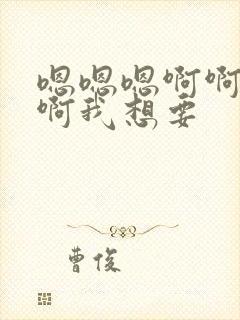 嗯嗯嗯啊啊
啊我想要
曹俊